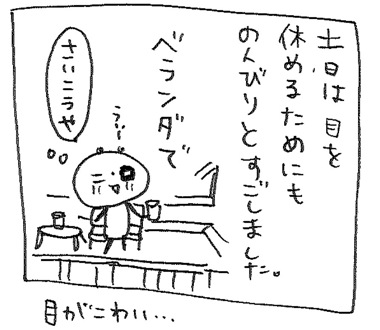 土日は目を
休めるためにも
のんびりとすごしました。
ベランダで
う〜
さいこうや
目がこわい…